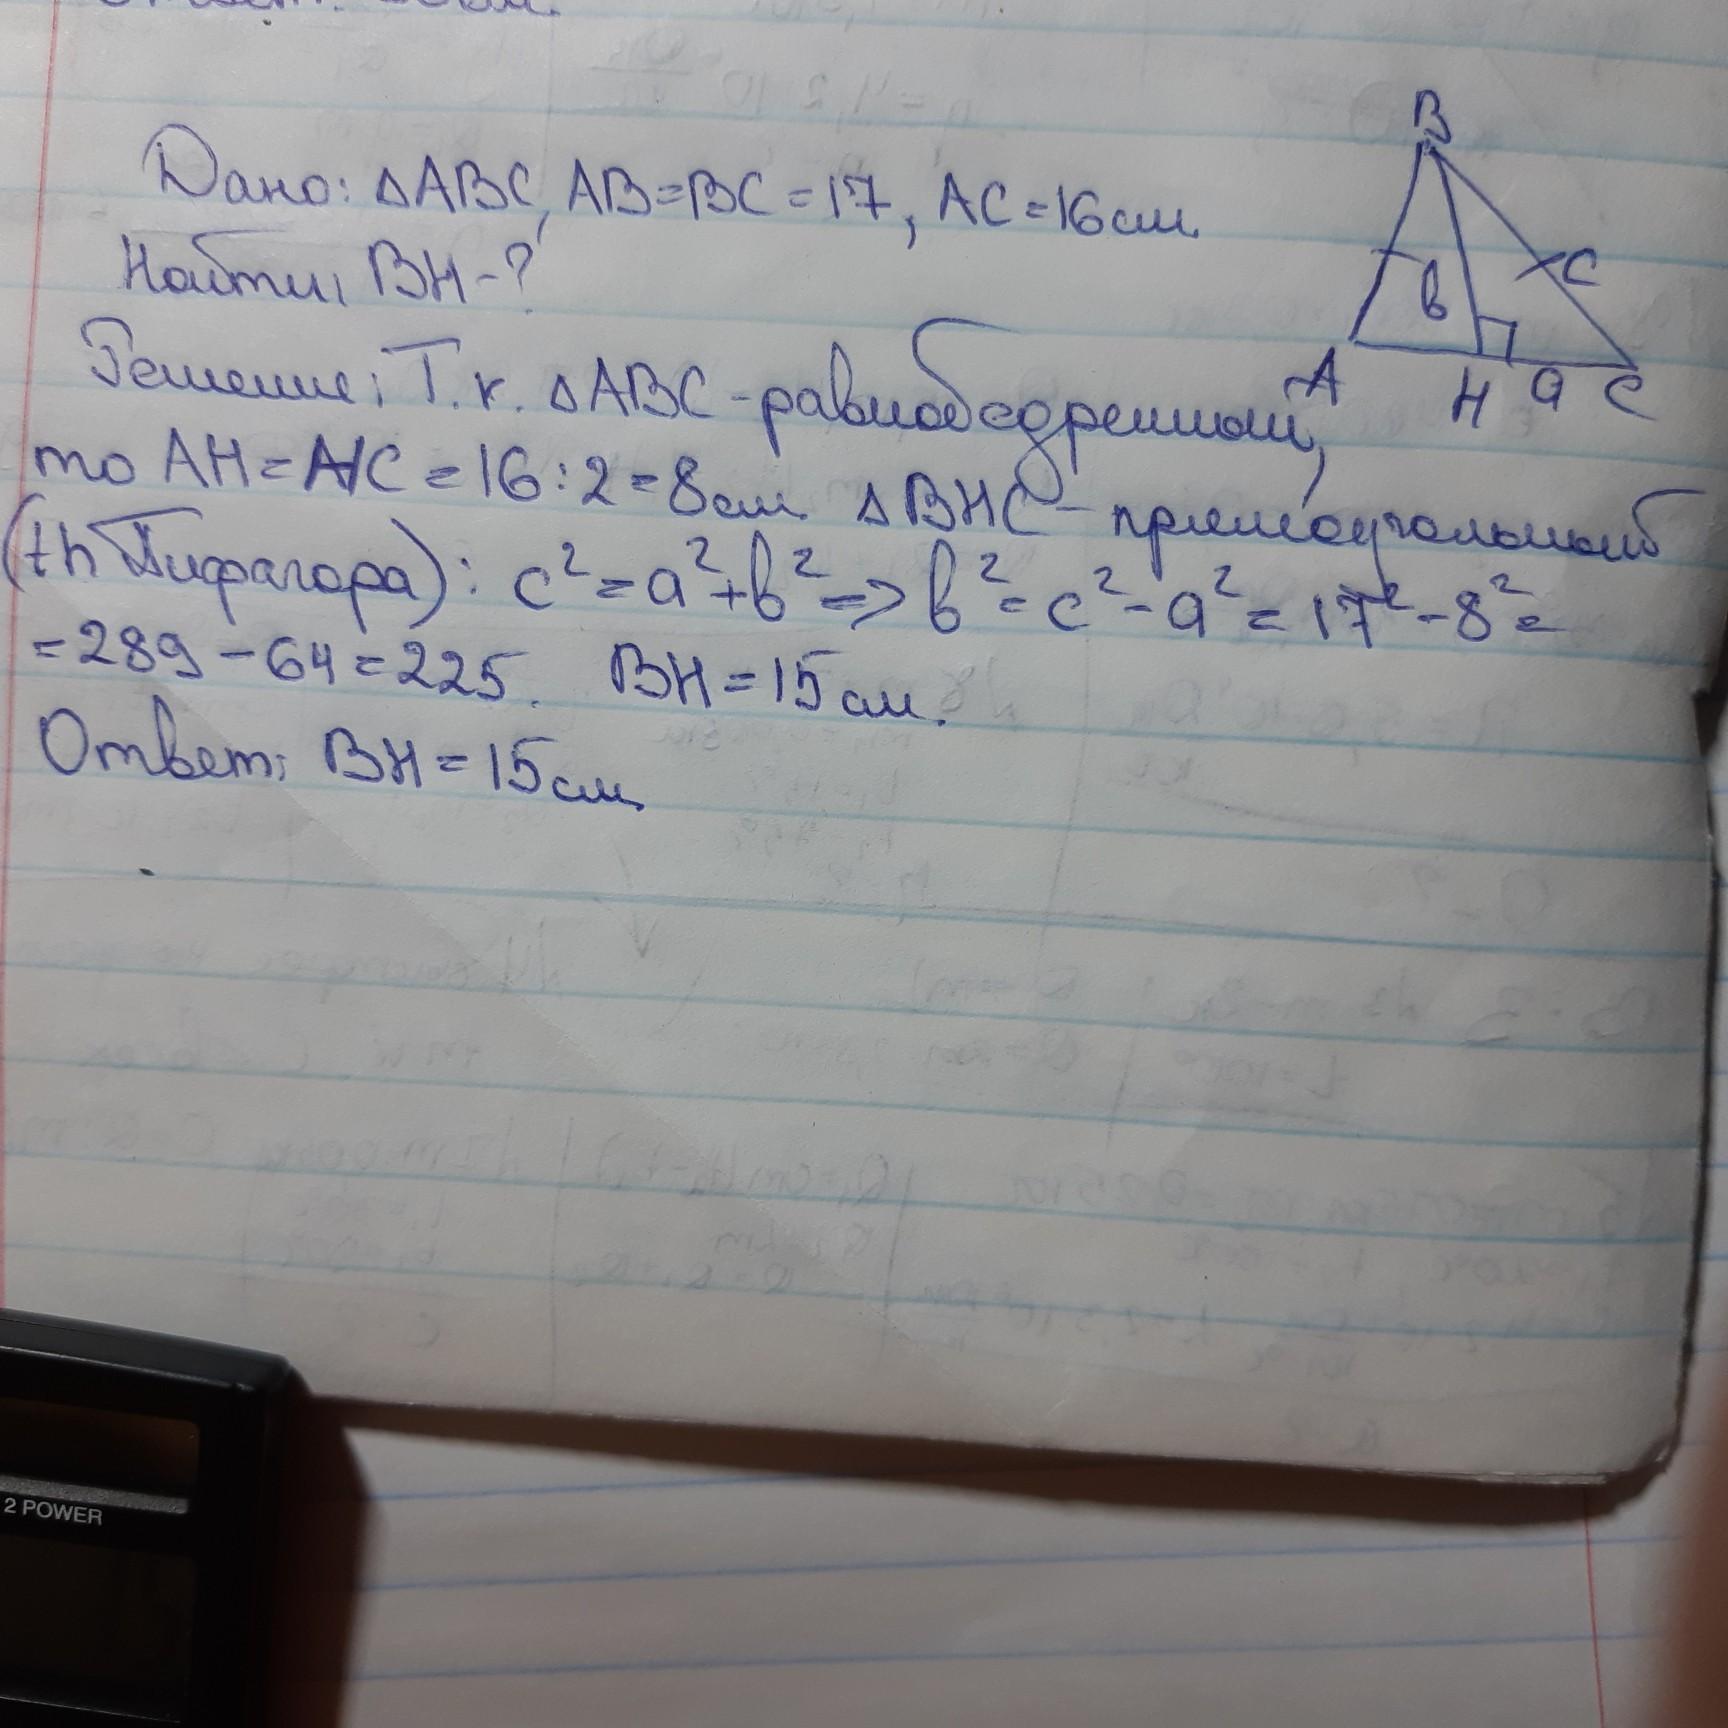 Дано: △ABC, AB=BC=17, AC=16см.
Найти: BH-?
Решение: Т.к. △ABC-равнобедренный,
то AH=HC=16:2=8см. △BHC- прямоугольный
(th Пифагора): c²=a²+b²=>b²=c²-a²=17²-8²=
=289-64=225. BH=15см.
Ответ: BH=15см.
B
b
c
A
H
a
C
2 POWER